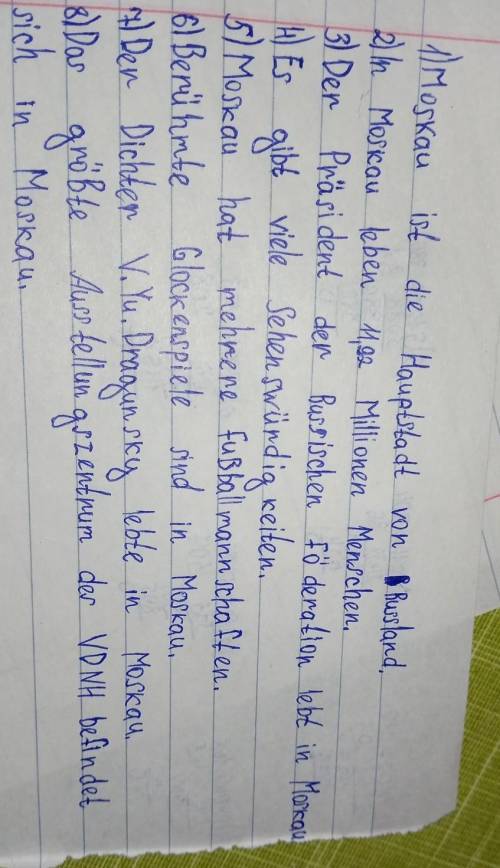 1) Moskau ist die Hauptstadt von Russland.
2) In Moskau leben 11,92 Millionen Menschen.
3) Der Präsident der Russischen Föderation lebt in Moskau
4) Es gibt viele Sehenswürdigkeiten.
5) Moskau hat mehrere Fußballmannschaften.
6) Berühmte Glockenspiele sind in Moskau.
7) Der Dichter V. Yu. Dragunsky lebte in Moskau.
8) Das größte Ausstellungszentrum der VDNH befindet
sich in Moskau.